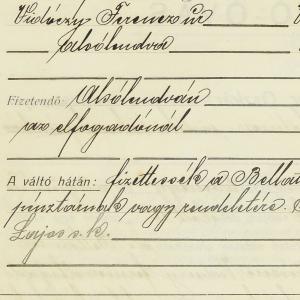 Vidóczy Ferencz úr
Alsólendva
Fizetendő: Alsólendván
az elfogadónál
A váltó hátán: fizettessék a
pénztárnak vagy rendeletére.
Lajos s. k.